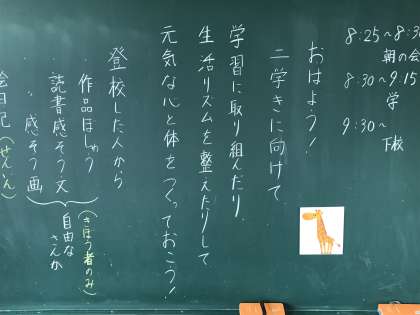 8:25～8:30
朝の会
8:30～9:15
学
9:30～
下校
おはよう!
二学きに向けて
学習に取り組んだり
生活リズムを整えたりして
元気な心と体をつくっておこう!
登校した人から
・作品ほしゅう
・読書感そう文
・〃感そう画
(きぼう者のみ)
自由な
さんか
絵日記(せんいん)